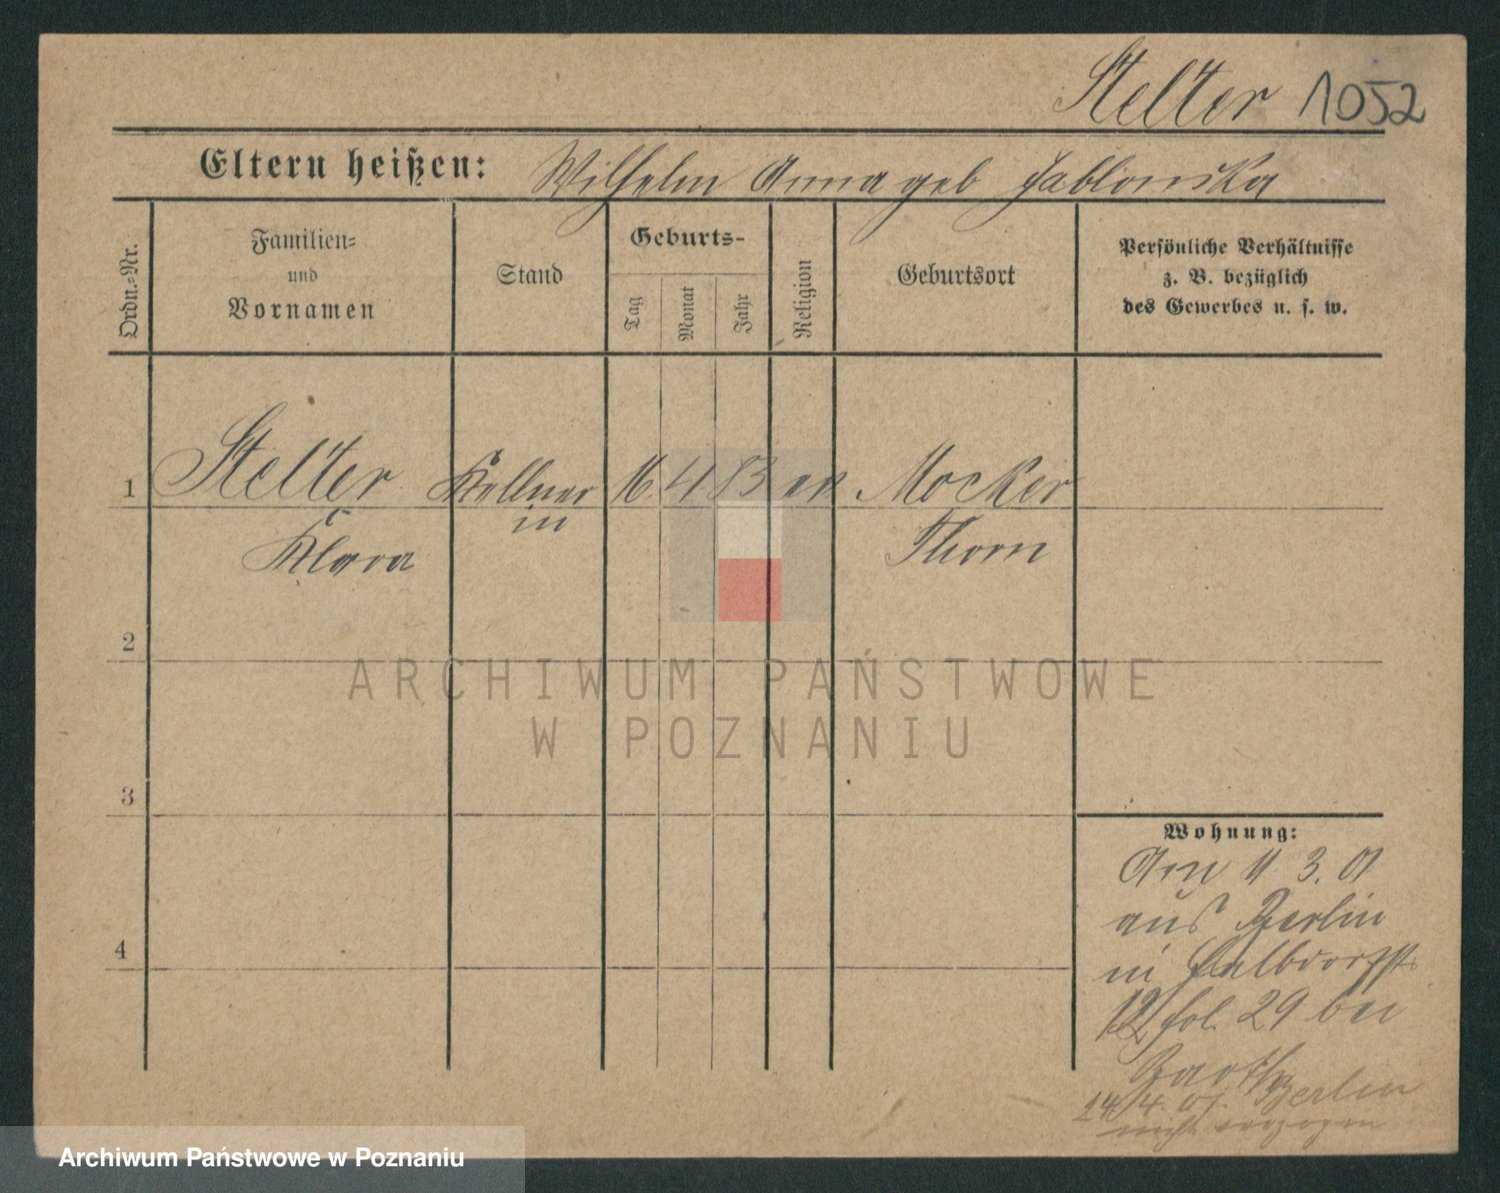 Stelter 1052
Eltern heißen: Wilhelm Anna geb Jablonska
Ordn.-Nr.
Familien-
und
Vornamen
Stand
Geburts-
Tag
Monat
Jahr
Religion
Geburtsort
Persönliche Verhältnisse
z. B. bezüglich
des Gewerbes u. s. w.
1 Stelter Kellner 16. 4 83 ev Mocker
in
Klara Thorn
2
ARCHIWUM PAŃSTWOWE
W POZNANIU
3
Wohnung:
Am 11 3. 01
aus Berlin
in Halbdorfst.
12 fol. 29 bei
Barth
24/4. 01. Berlin
verzogen
4
Archiwum Państwowe w Poznaniu